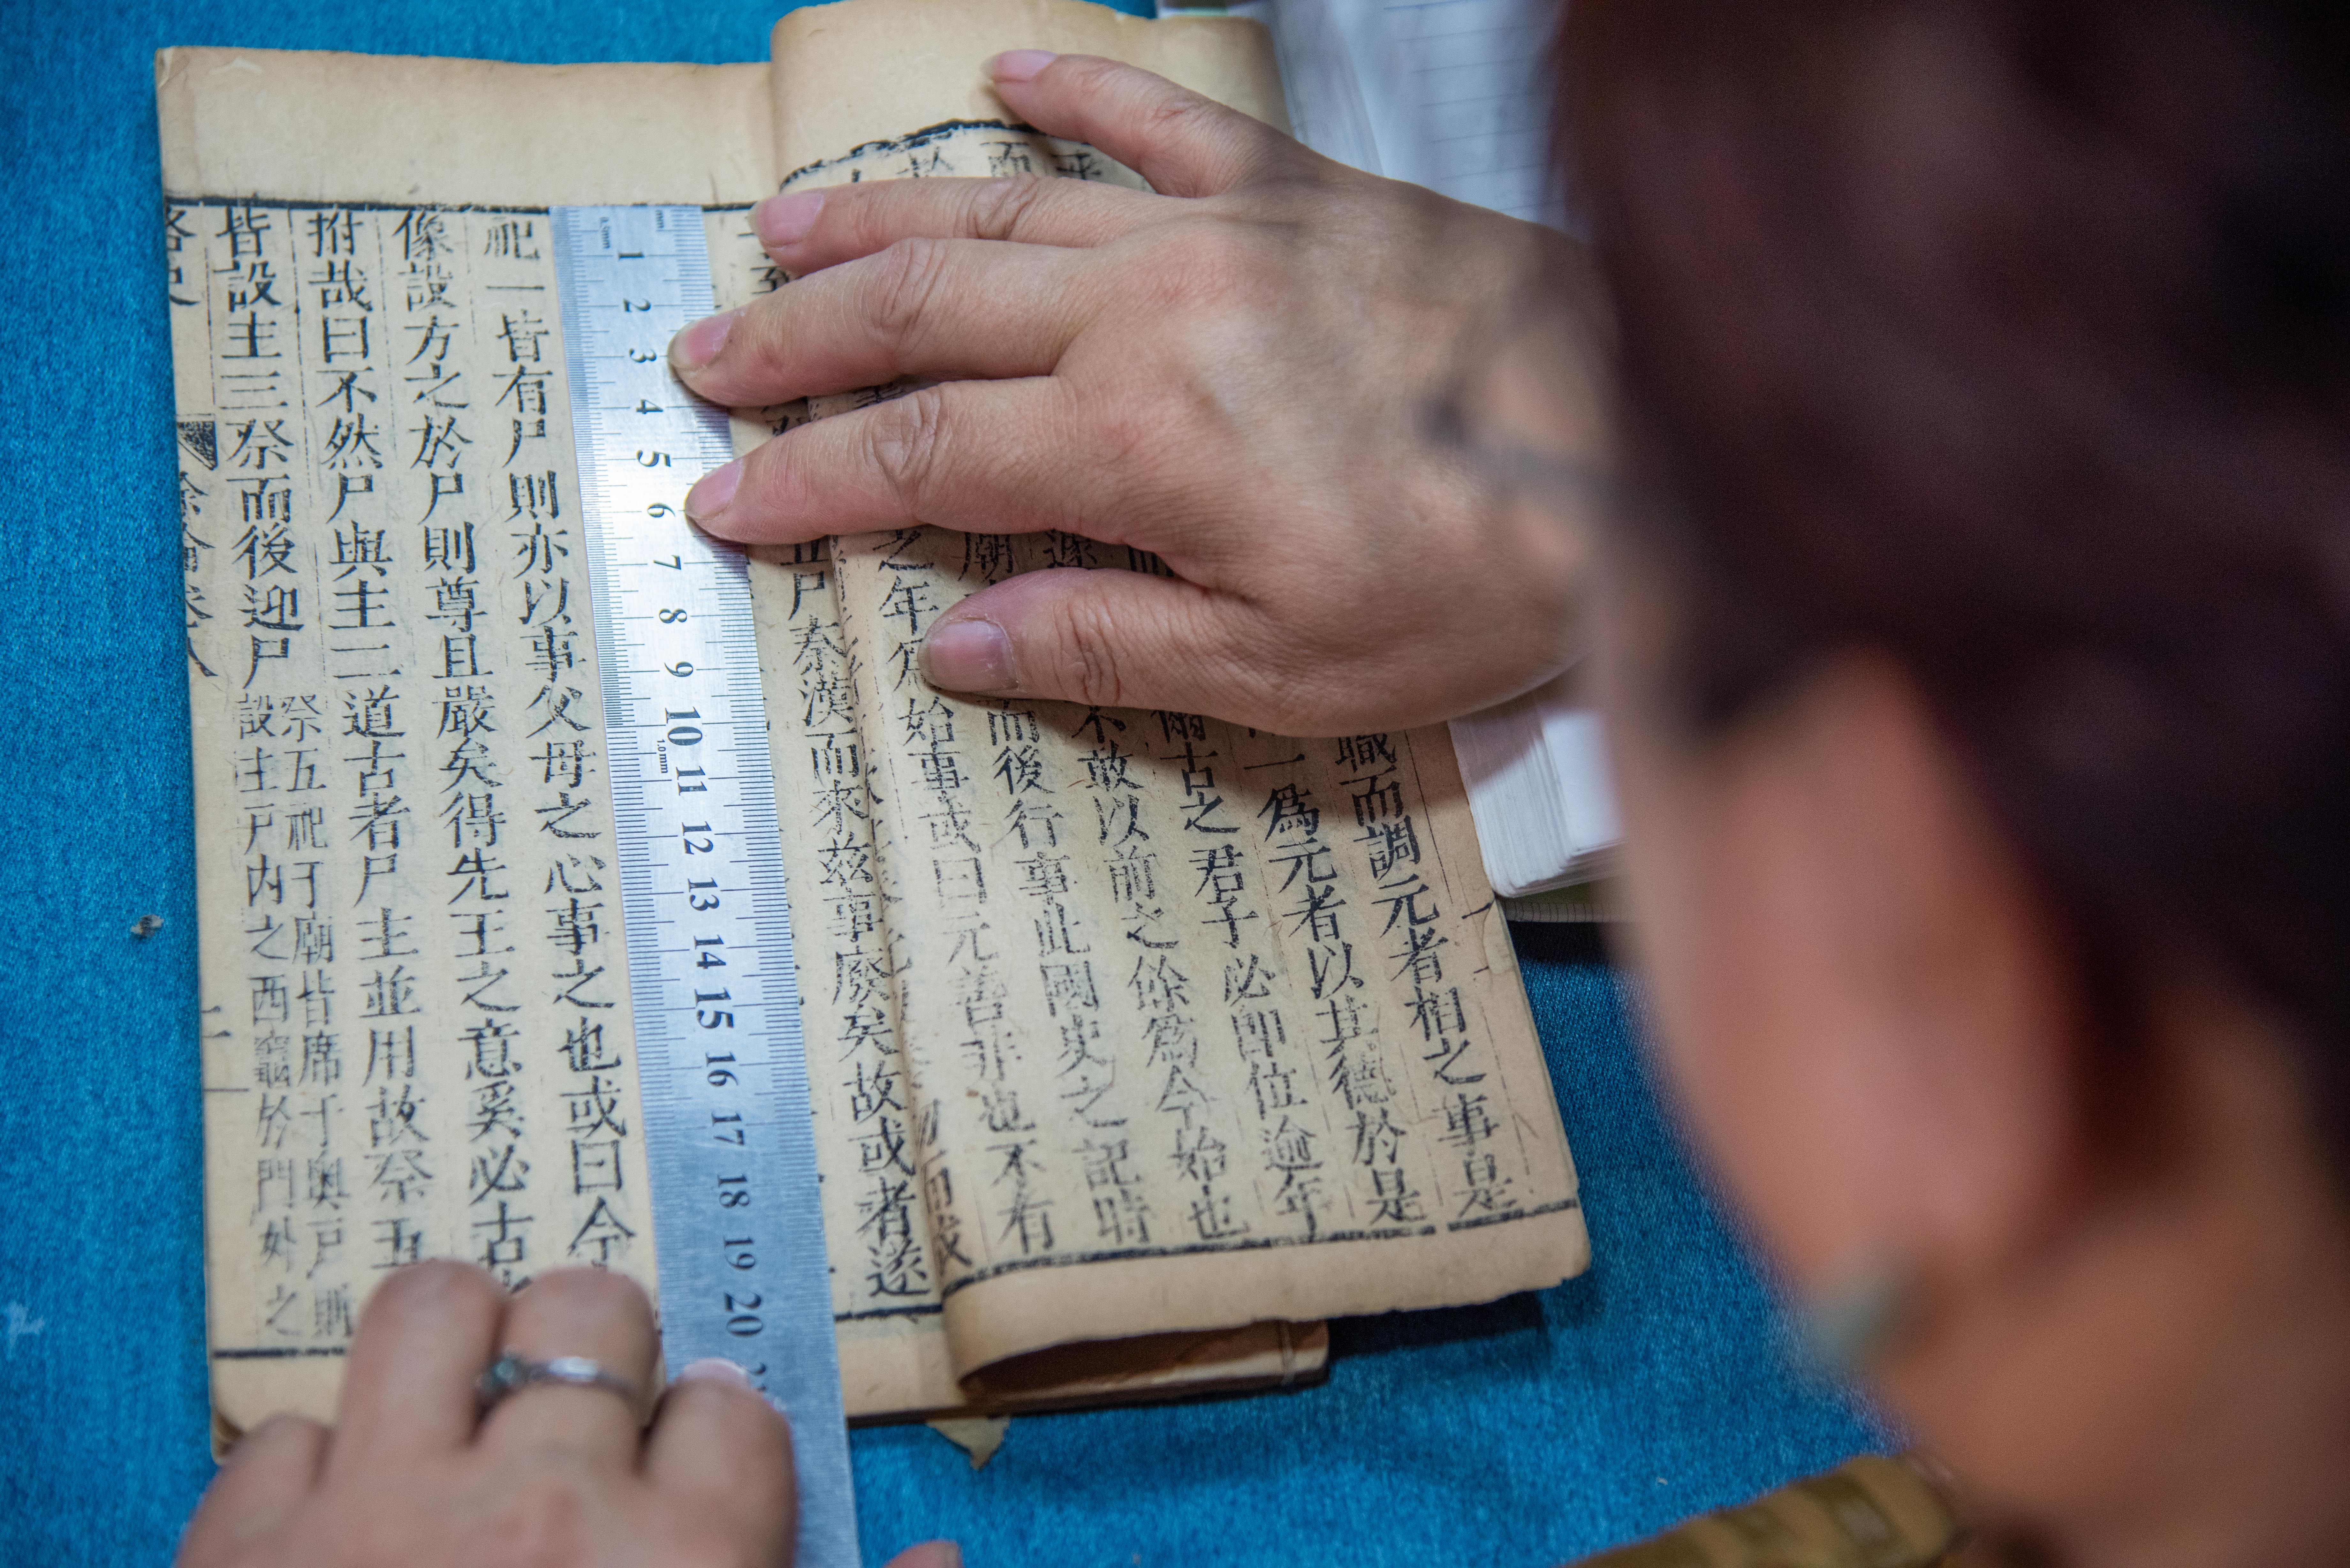 職而調元者相之事是
一爲元者以其德於是
爾古之君子必即位逾年
不敢以前之餘爲今始也
廟而後行事此國史之記時
之年爲始事或曰元善非也不有
尸秦漢而來茲事廢矣故或者遂
1 2 3 4 5 6 7 8 9 10 11 12 13 14 15 16 17 18 19 20
祀一皆有尸則亦以事父母之心事之也或曰今
像設方之於尸則尊且嚴矣得先王之意奚必古
拊哉曰不然尸與主二道古者尸主並用故祭五
皆設主三祭而後迎尸
祭五祀于廟皆席于奧戶則
設主戶內之西竈於門外之
路史